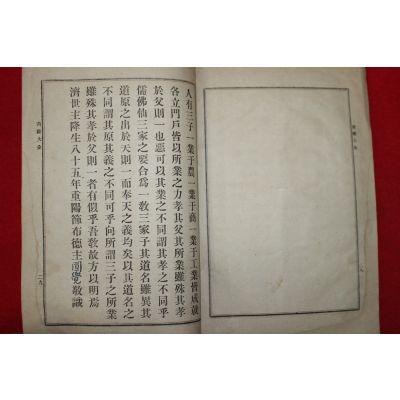 人有三子一業于農一業于商一業于工業皆成就
各立門戶皆以所業之力孝其父其所業雖殊其孝
於父則一也惡可以其業之不同謂其孝之不同乎
儒佛仙三家之要合爲一敎三家子其道名雖異其
道原之出於天則一而奉天之義均矣以其道名之
不同謂其原其義之不同可乎向所謂三子之所業
雖殊其孝於父則一者有似乎吾敎故方以明焉
濟世主降生八十五年重陽節布德主
敬識
二九